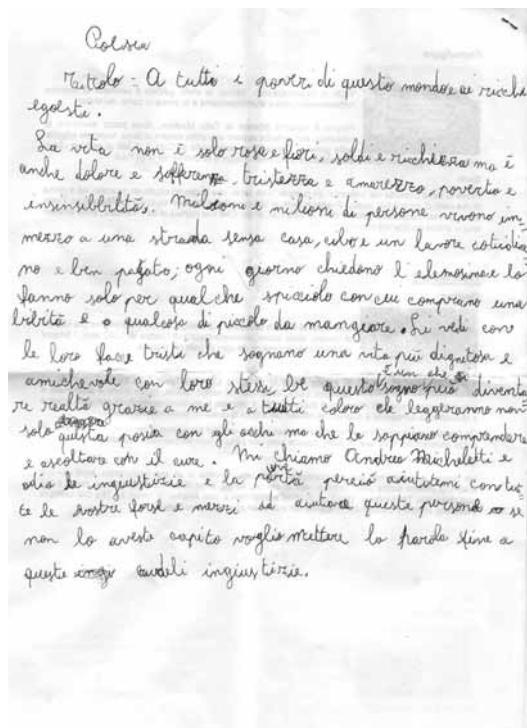 Poesia
Titolo = A tutti i poveri di questo mondo e ai ricchi
egoisti.
La vita non è solo rose e fiori, soldi e ricchezza ma è
anche dolore e sofferenza, tristezza e amarezza, povertà e
insensibilità. Milioni e milioni di persone vivono in
mezzo a una strada senza casa, cibo e un lavoro cotidia
no e ben pagato; ogni giorno chiedono l'elemosina e lo
fanno solo per qualche spicciolo con cui comprano una
bibita e o qualcosa di piccolo da mangiare. Li vedi con
le loro facce tristi che sognano una vita più dignitosa e
amichevole con loro stessi, be questo è un sogno che può diventa
re realtà grazie a me e a tutti coloro che leggeranno non
solo questa poesia con gli occhi ma che la sappiano comprendere
e ascoltare con il cuore. Mi chiamo Andrea Micheletti e
odio le ingiustizie e la perciò aiutatemi con tut
te le vostre forse e mezzi ad aiutare queste persone se
non lo aveste capito voglio mettere la parola fine a
queste crudeli ingiustizie.